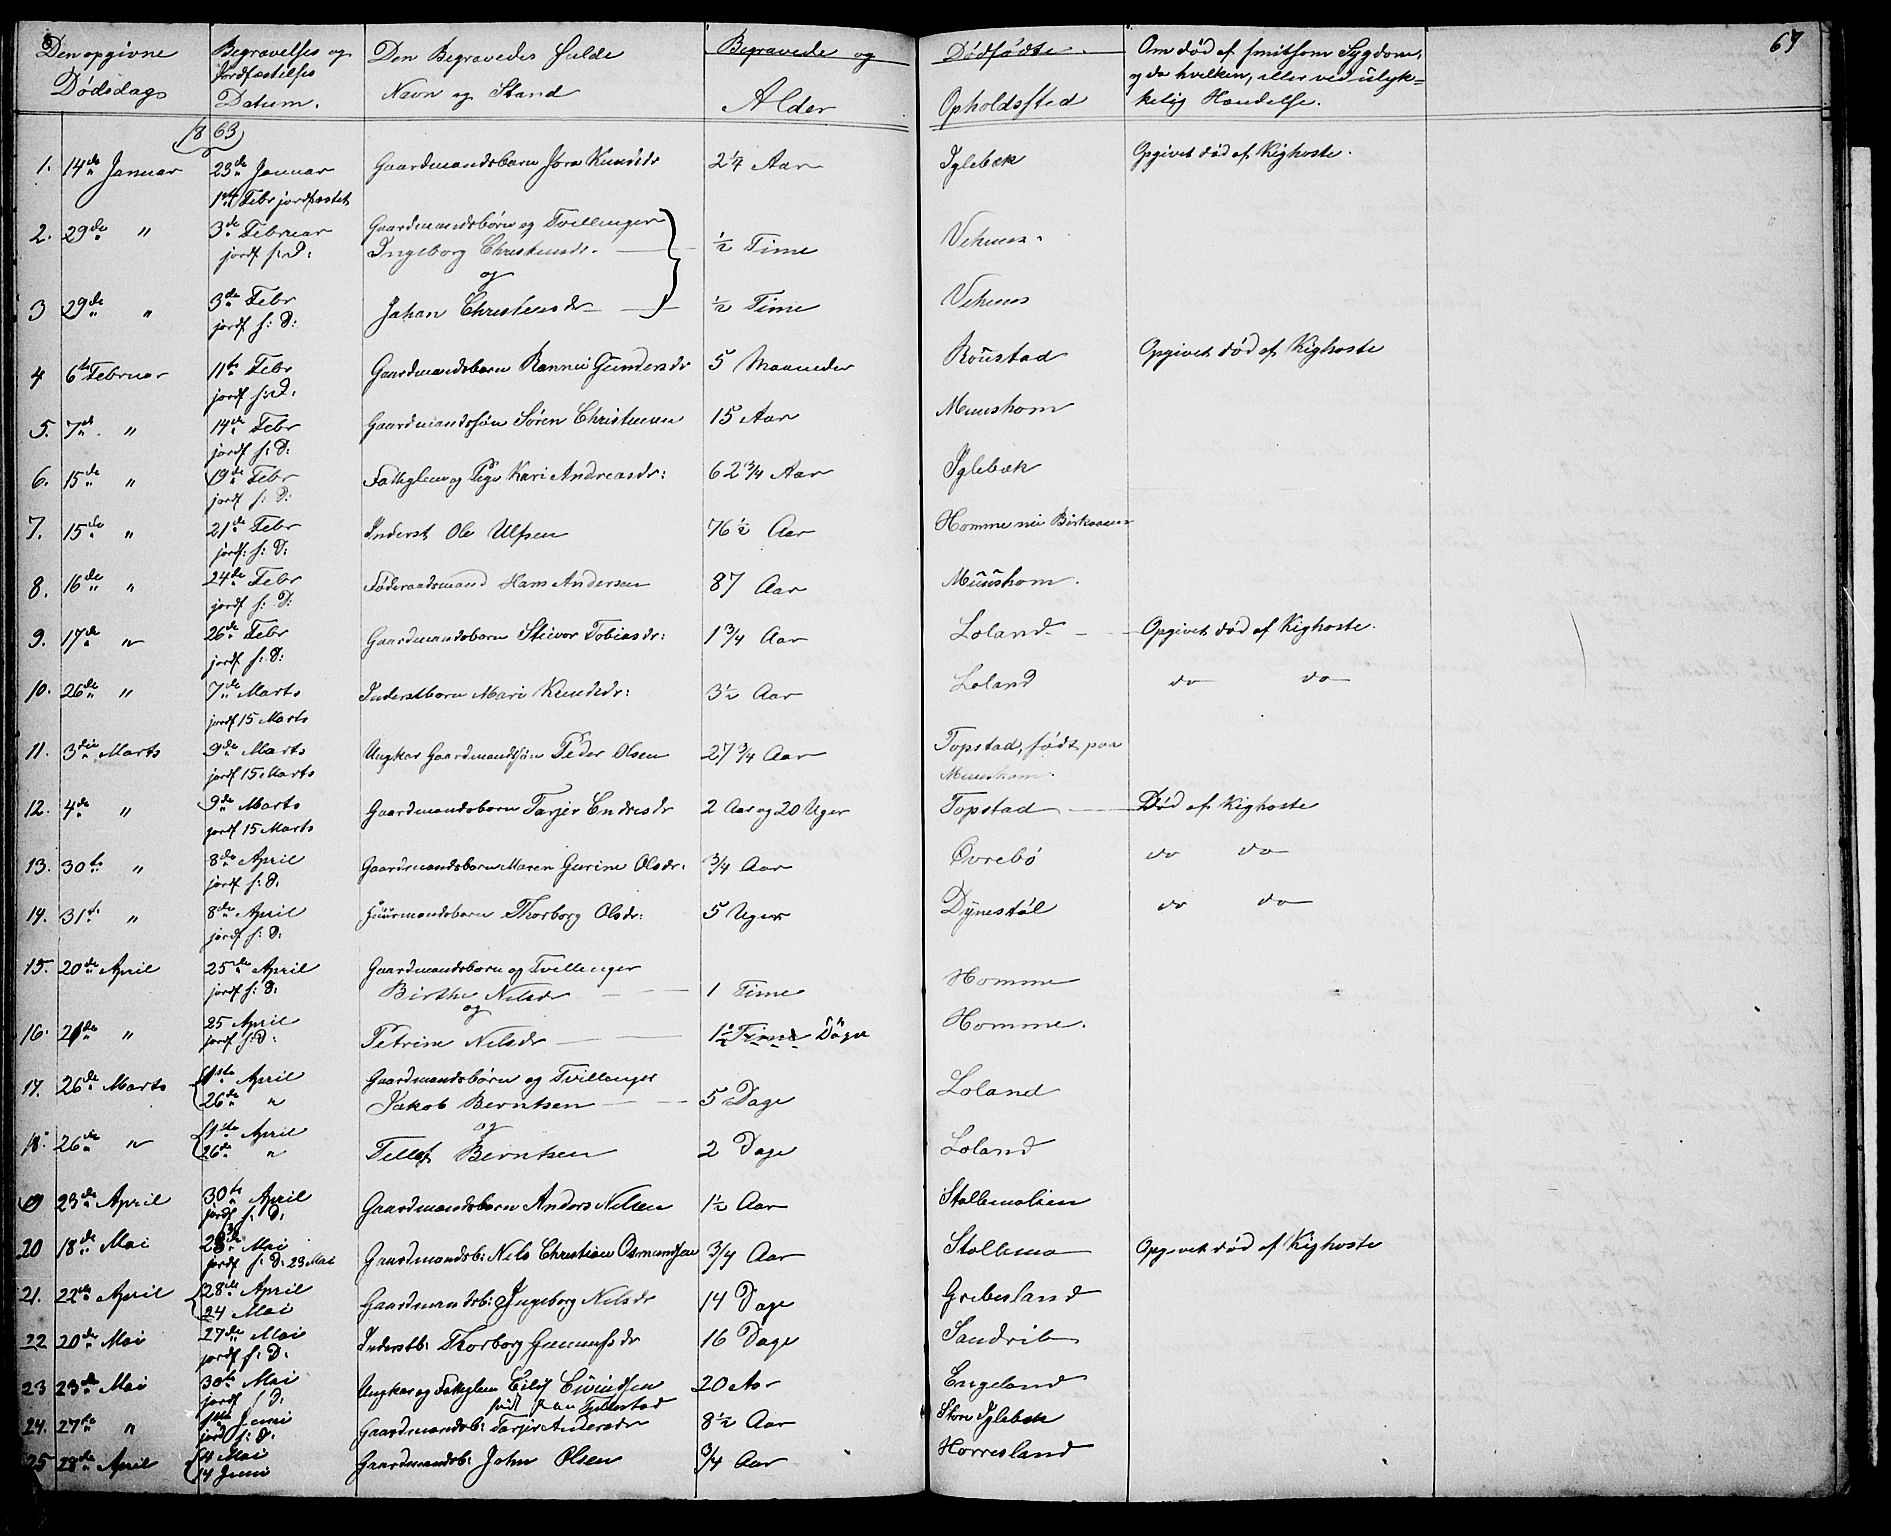 Den opgivne Dødsdag
Begravelses og Jordfæstelses Datum.
Den Begravedes fulde Navn og Stand
Begravede og Dødfødte
Alder
Opholdssted
Om død af smitsom Sygdom, og da hvilken, eller ved ulyk=kelig Hændelse.
67
1863
1. 14de Januar 23de Januar Gaardmandsbarn Jøra Knudsdr 2 1/4 Aar Iglebæk Opgivet død af Kighoste.
Febr jordfæstet
2. 29de " 3de Februar Gaardmandsbørn og Tvillinger
jordf s: D: Ingeborg Christensdr. ½ Time Vehuus.
og
3 29de " 3de Febr Johan Christensdr ½ Time Vehuus
jordf s: D:
4 6te Februar 11te Febr Gaardmandsbarn Rannei Gundersdr 5 Maaneder Roustad Opgivet død af Kighoste
jordf s: D:
5. 7de " 14de Febr Gaardmandssøn Søren Christensen 15 Aar Muushom
jordf s: D:
6. 15de " 19de Febr Fattiglem og Pige Kari Andreasdr: 62 3/4 Aar Iglebæk
jordf s: D:
7. 15de " 21de Febr Inderst Ole Ulfsen 76 ½ Aar Homme
jordf: s: D:
8. 16de " 24de Febr Føderaadsmand Hans Andersen 87 Aar Muushom.
jordf s: D:
9. 17de " 26de Febr Gaardmandsbarn Stivor Tobiasdr: 1 3/4 Aar Loland Opgivet død af Kighoste.
jordf s: D:
10. 26de " 7de Marts Inderstbarn Mari Knudsdr: 3 ½ Aar Loland do do
jordf 15 Marts
11. 3die Marts 9de Marts Ungkar Gaardmandssøn Peder Olsen 27 3/4 Aar Topstad, født paa
jordf 15 Marts Muushom.
12. 4de " 9de Marts Gaardmandsbarn Tarjer Endresdr 2 Aar og 20 Uger Topstad Død af Kighoste
jordf 15 Marts
13. 30te " 8de April Gaardmandsbarn Maren Gurine Olsdr: 3/4 Aar Øvrebø do do
jordf s: D:
14. 31te " 8de April Huusmandsbarn Thorborg Olsdr: 5 Uger Dynestøl do do
jordf s: D:
15. 20de April 25de April Gaardmandsbørn og Tvillinger
jordf s: D: Birthe Nilsdr 1 Time Homme
og
16. 21de " 25 April Petrine Nilsdr 1½ Time Døgn Homme.
jordf s: D:
17. 26de Marts 1ste April Gaardmandsbørn og Tvillinger
26de " Jakob Berntsen 5 Dage Loland
og
18. 26de " 1ste April
26de " Tellef Berntsen 2 Dage Loland
19 23de April 30te April Gaardmandsbarn Anders Nilsen 1½ Aar Stallemolien
jordf s: D:
20 18de Mai Mai Gaardmandsb: Nils Christian Osmundsen 3/4 Aar Stallemo Opgivet død af Kighoste
jordf s: D: 23 Mai
21. 22de April 28de April Gaardmandsb: Ingeborg Nilsdr 14 Dage Grebesland
24 Mai
22 20de Mai 27de Mai Inderstb: Thorborg Gunnufsdr 16 Dage Sandrib
jordf s: D:
23 23de Mai 30te Mai Ungkar og Fattiglem Eilef Eivindsen 20 Aar Engeland
jordf s: D: født paa
24. 27de " 1ste Juni Gaardmandsb: Tarjer Andersdr 8½ Aar Store Iglebæk
jordf s: D:
25 28de April 4 Mai Gaardmandsb: John Olsen 3/4 Aar Horresland
14 Juni